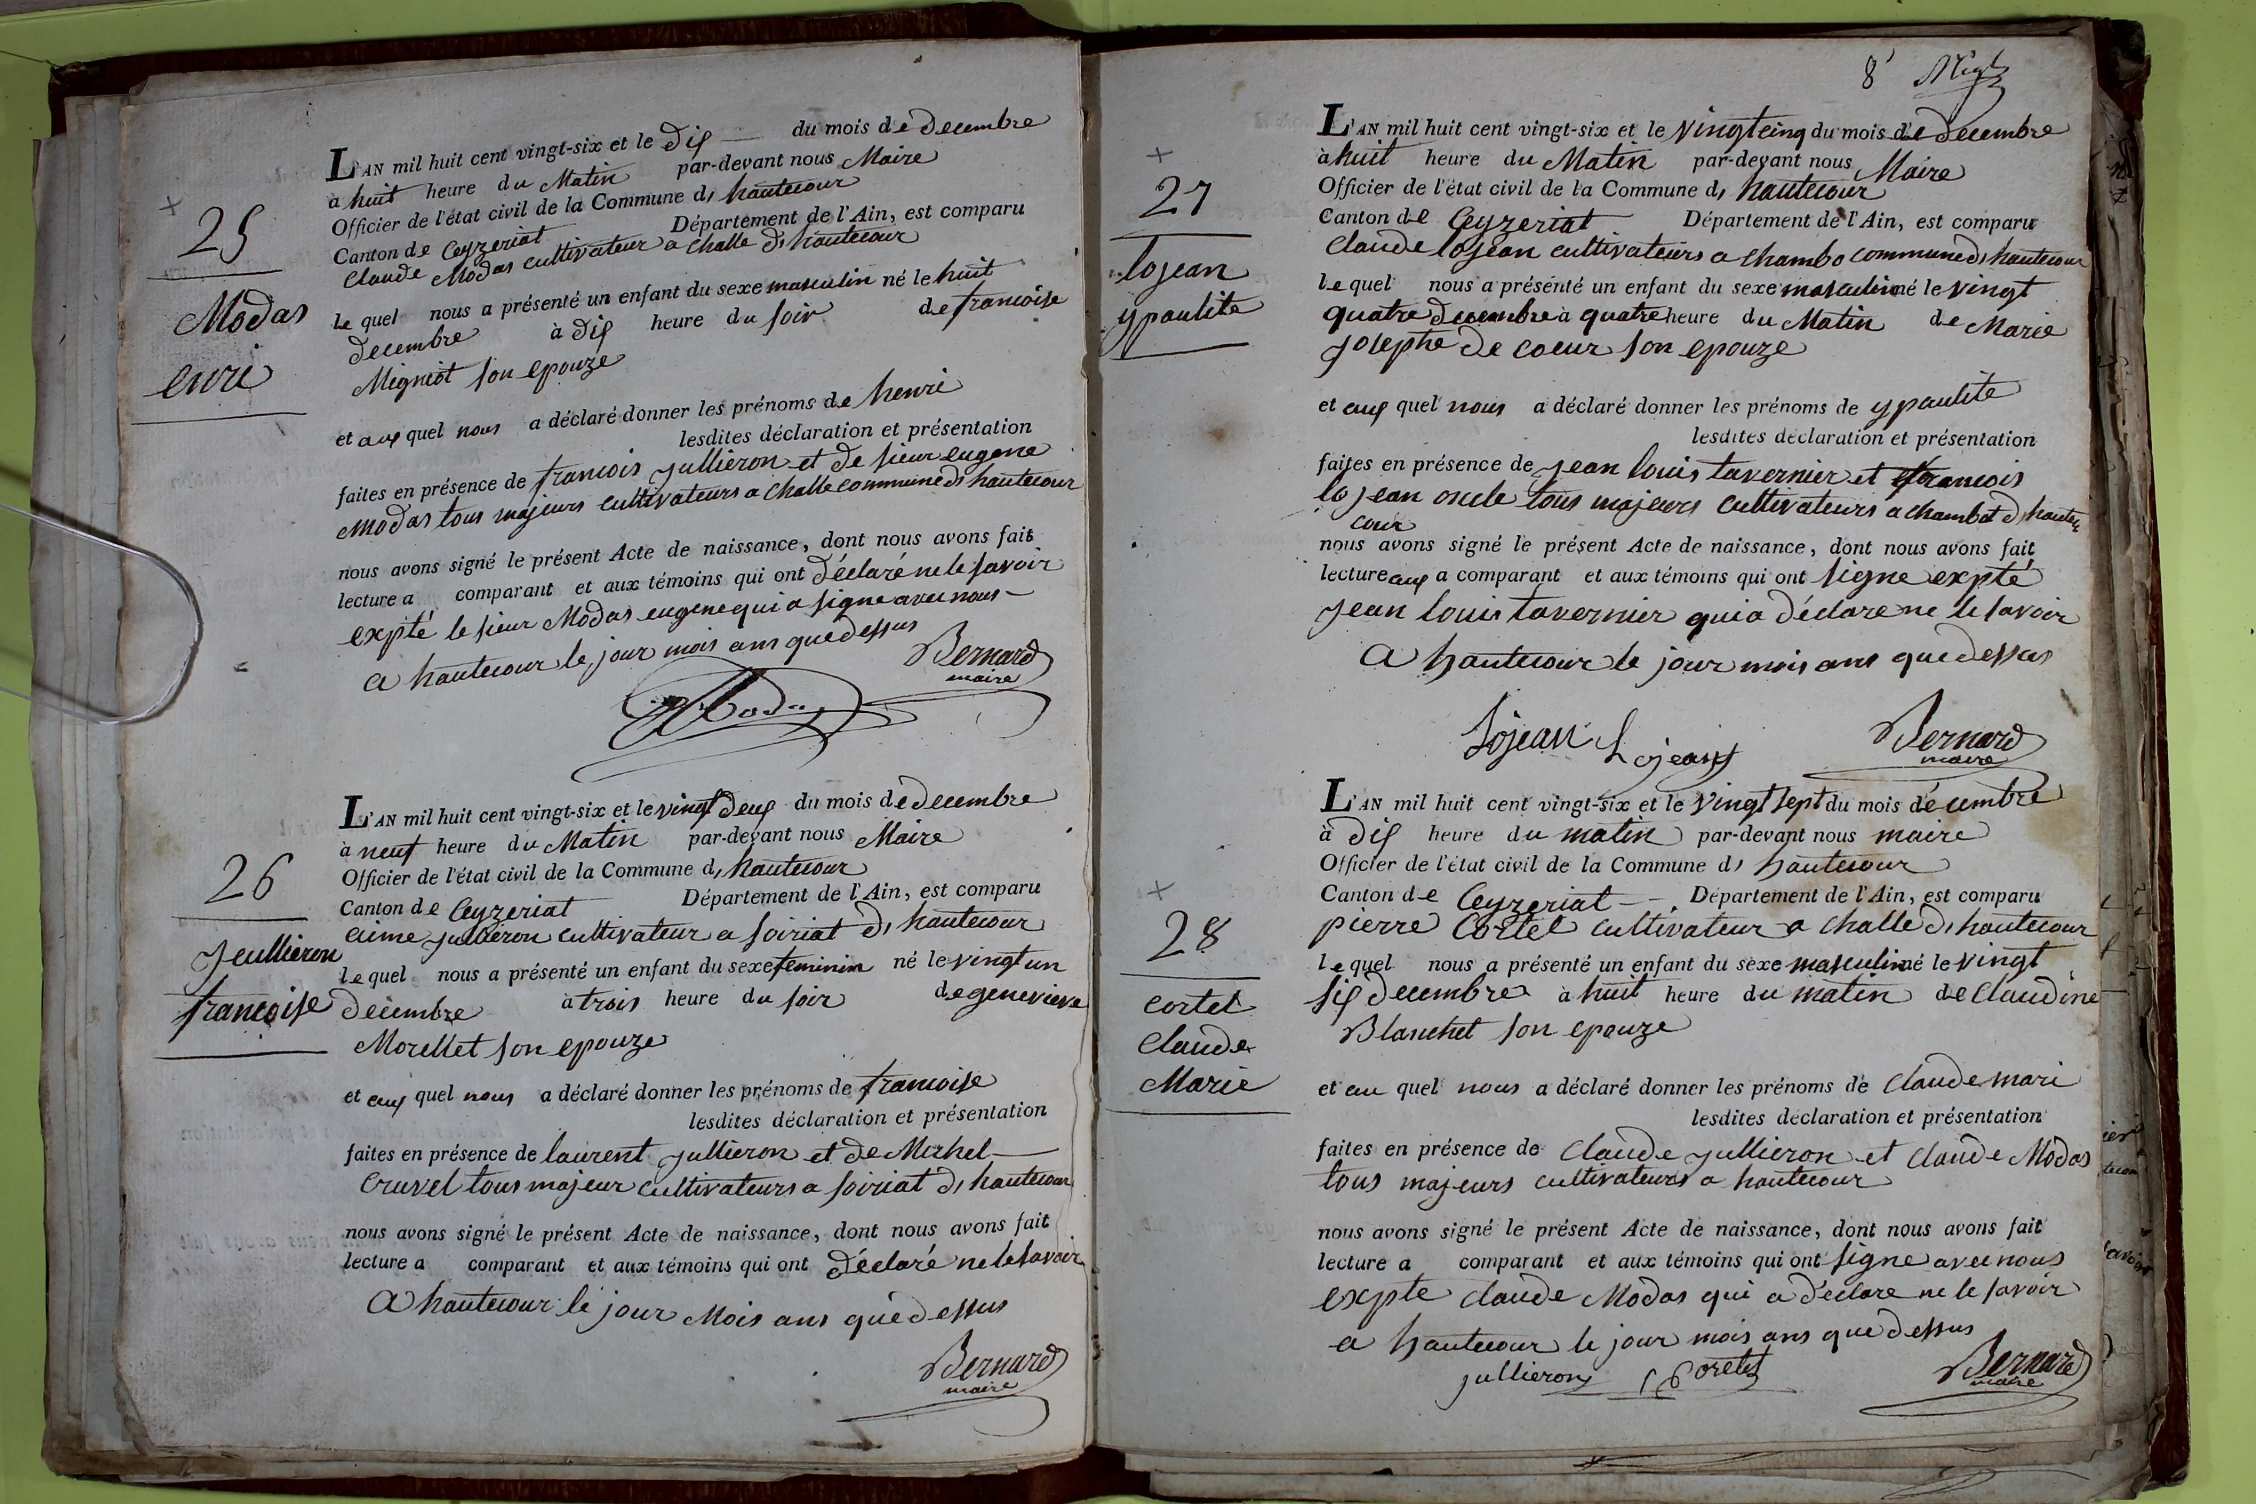 25
Modas
enri
L'AN mil huit cent vingt-six et le dix du mois de decembre
à huit heure du Matin par-devant nous Maire
Officier de l'état civil de la Commune d, hautecour
Canton de Ceyzeriat Département de l'Ain, est comparu
claude Modas cultivateur a challe d, hautecour
le quel nous a présenté un enfant du sexe masculin né le huit
decembre à dix heure du soir de francoise
Migniot son epouze
et aux quel nous a déclaré donner les prénoms de henri
lesdites déclaration et présentation
faites en présence de francois jullieron et de sieur eugene
Modas tous majeurs cultivateurs a challe commune d, hautecour
nous avons signé le présent Acte de naissance, dont nous avons fait
lecture a comparant et aux témoins qui ont déclaré ne le savoir
expté le sieur Modas eugene qui a signe avec nous
a hautecour le jour mois ans que dessus
Bernard
maire
Modas
26
Jeullieron
francoise
L'AN mil huit cent vingt-six et le vingt deux du mois de decembre
à neuf heure du Matin par-devant nous Maire
Officier de l'état civil de la Commune d, hautecour
Canton de Ceyzeriat Département de l'Ain, est comparu
aime jullieron cultivateur a soiriat d, hautecour
le quel nous a présenté un enfant du sexe feminin né le vingt un
decembre à trois heure du soir de genevieve
Morellet son epouze
et aux quel nous a déclaré donner les prénoms de francoise
lesdites déclaration et présentation
faites en présence de laurent jullieron et de Michel
Cruvel tous majeur cultivateurs a soiriat d, hautecour
nous avons signé le présent Acte de naissance, dont nous avons fait
lecture a comparant et aux témoins qui ont déclaré ne le savoir
A hautecour le jour Mois ans que dessus
Bernard
maire
8
27
lojean
ypaulite
L'AN mil huit cent vingt-six et le vingt cinq du mois de decembre
à huit heure du Matin par-devant nous Maire
Officier de l'état civil de la Commune d, hautecour
Canton de Ceyzeriat Département de l'Ain, est comparu
claude lojean cultivateurs a chambo commune d, hautecour
le quel nous a présenté un enfant du sexe masculin né le vingt
quatre decembre à quatre heure du Matin de Marie
josephe de coeur son epouze
et aux quel nous a déclaré donner les prénoms de ypaulite
lesdites déclaration et présentation
faites en présence de jean louis tavernier et francois
lojean oncle tous majeurs cultivateurs a chambot d, haute
cour
nous avons signé le présent Acte de naissance, dont nous avons fait
lecture aux a comparant et aux témoins qui ont signe expté
jean louis tavernier qui a déclare ne le savoir
A hautecour le jour mois ans que dessus
Lojean Lojean
Bernard
maire
28
cortet
Claude
Marie
L'AN mil huit cent vingt-six et le vingt sept du mois décembre
à dix heure du matin par-devant nous maire
Officier de l'état civil de la Commune d, hautecour
Canton de Ceyzeriat Département de l'Ain, est comparu
pierre Cortet cultivateur a challe d, hautecour
le quel nous a présenté un enfant du sexe masculin né le vingt
six decembre à huit heure du matin de Claudine
Blanchet son epouze
et au quel nous a déclaré donner les prénoms de Claude mari
lesdites déclaration et présentation
faites en présence de Claude jullieron et Claude Modas
tous majeurs cultivateurs a hautecour
nous avons signé le présent Acte de naissance, dont nous avons fait
lecture a comparant et aux témoins qui ont signe avec nous
expte claude Modas qui a déclare ne le savoir
a hautecour le jour mois ans que dessus
jullieron
Bernard
maire